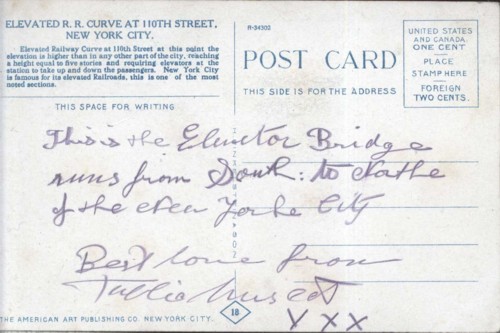 ELEVATED R. R. CURVE AT 110TH STREET,
NEW YORK CITY.
Elevated Railway Curve at 110th Street at this point the
elevation is higher than in any other part of the city, reaching
a height equal to five stories and requiring elevators at the
station to take up and down the passengers. New York City
is famous for its elevated Railroads, this is one of the most
noted sections.
THIS SPACE FOR WRITING
R-54303
POST CARD
THIS SIDE IS FOR THE ADDRESS
UNITED STATES
AND CANADA.
ONE CENT
PLACE
STAMP HERE
FOREIGN
TWO CENTS.
This is the Bridge
runs from South: to
of the New Yorke City
Best love from
XXX
THE AMERICAN ART PUBLISHING CO. NEW YORK CITY.
18